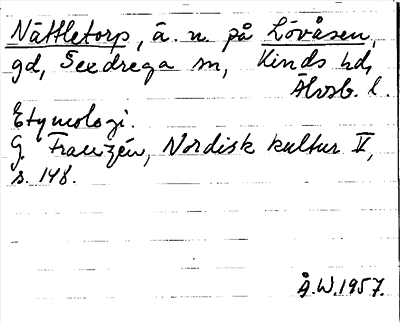 Nättletorp, ä. n. på Lövåsen,
gd, Sexdrega sn, Kinds hd,
Älvsb. l.
Etymologi.
G. Franzén, Nordisk kultur V,
s. 148.
Å.W.1957.